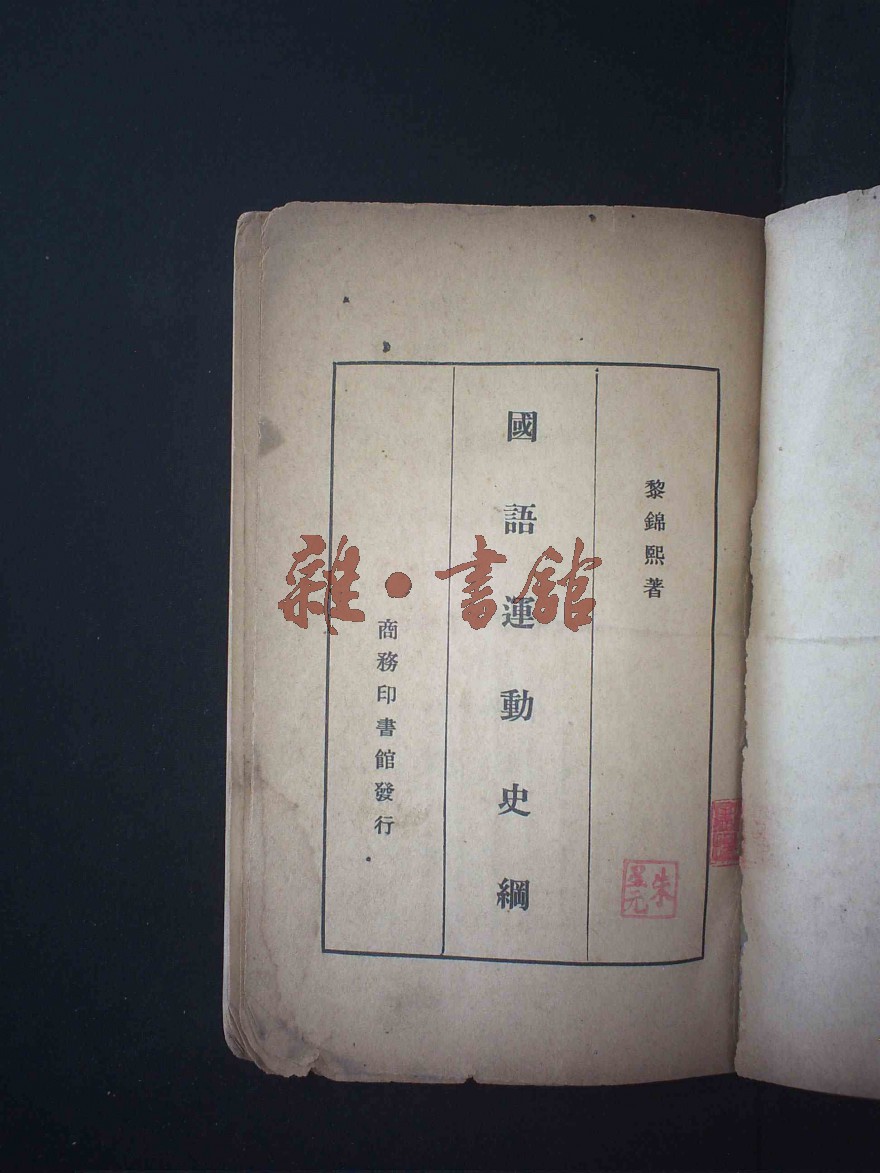 黎錦熙著
國語運動史綱
商務印書館發行
雜·書館